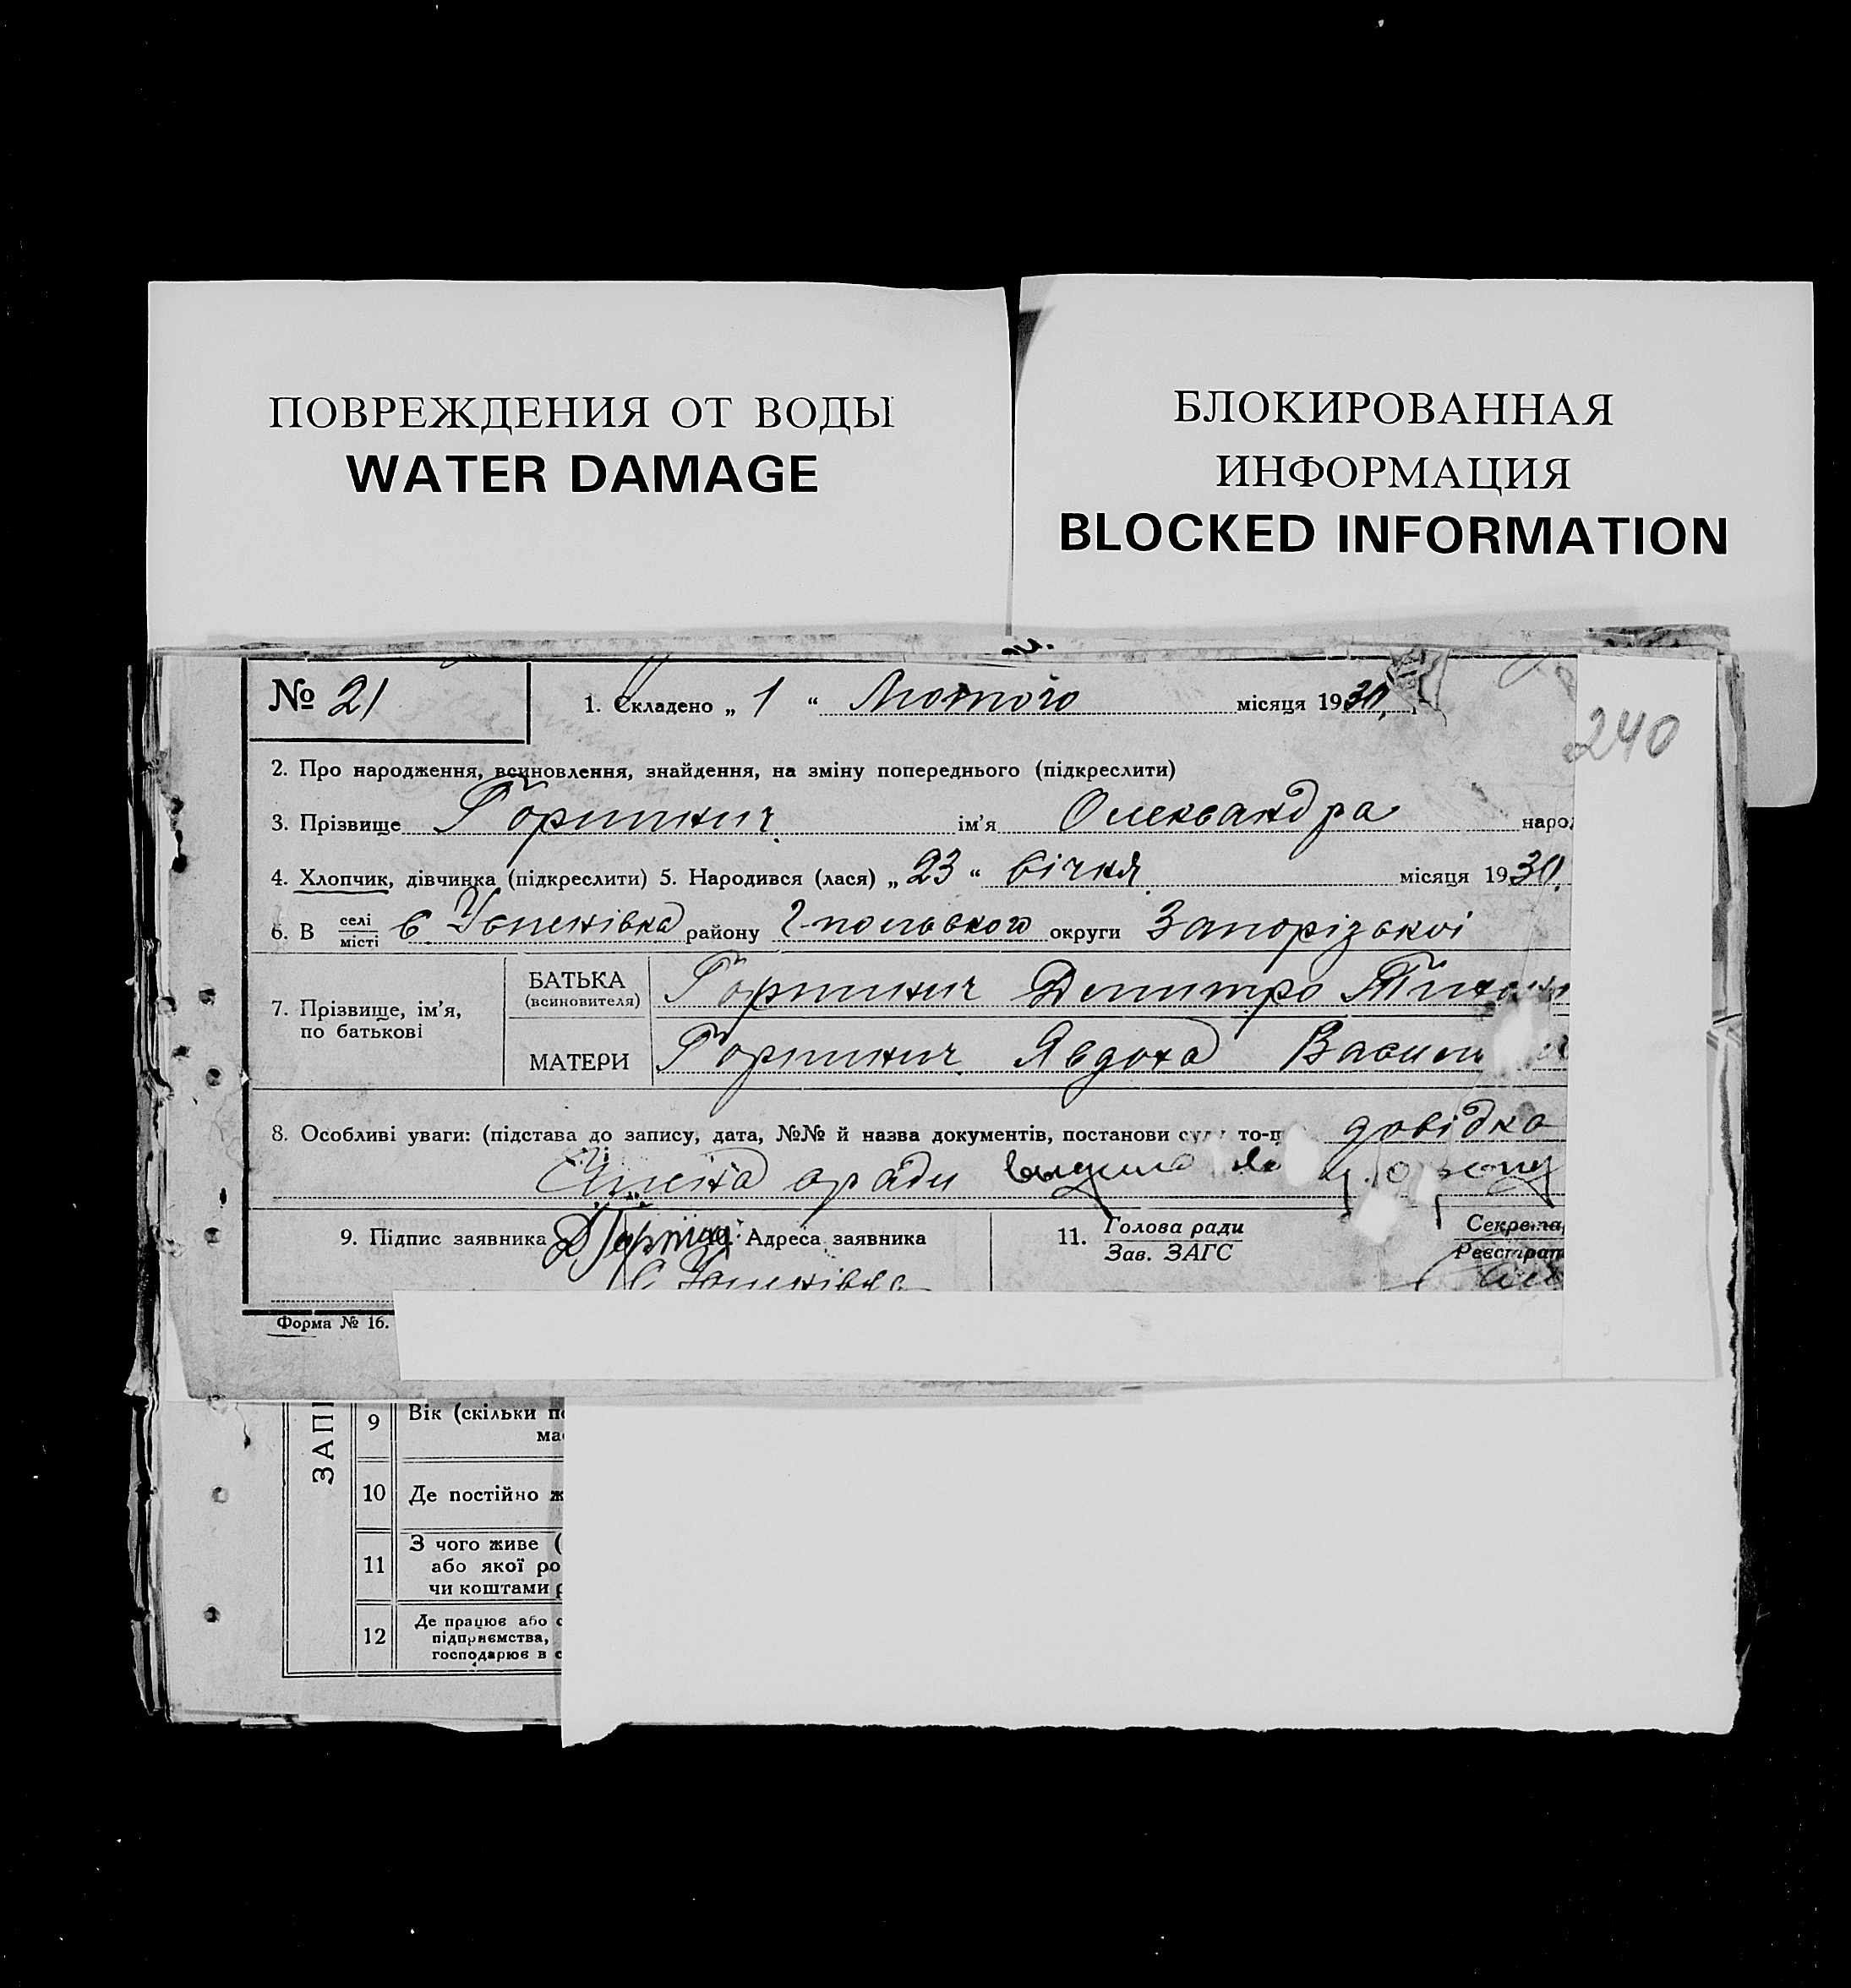 ПОВРЕЖДЕНИЯ ОТ ВОДЫ
WATER DAMAGE
БЛОКИРОВАННАЯ
ИНФОРМАЦИЯ
BLOCKED INFORMATION
№ 21
1. Складено „ 1 “ Лютого місяця 1930
240
2. Про народження, всиновлення, знайдення, на зміну попереднього (підкреслити)
3. Прізвище ім’я Олександра наро
4. Хлопчик, дівчинка (підкреслити) 5. Народився (лася) „ 23 “ січня місяця 1930
6. В селі/місті с Успенівка району Г-польського округи Запорізької
7. Прізвище, ім’я, по батькові
БАТЬКА (всиновителя) Дмитро
МАТЕРИ Явдоха
8. Особливі уваги: (підстава до запису, дата, №№ й назва документів, постанови суду то-що довідка
9. Підпис заявника
10. Адреса заявника
с Успенівка
11. Голова ради
Зав. ЗАГС
Секрета
Реєстрат
Форма № 16.
ЗАП
9 Вік (скільки п
ма
10 Де постійно ж
11 З чого живе (
або якої ро
чи коштами р
12 Де працює або с
підприємства,
господарює в с